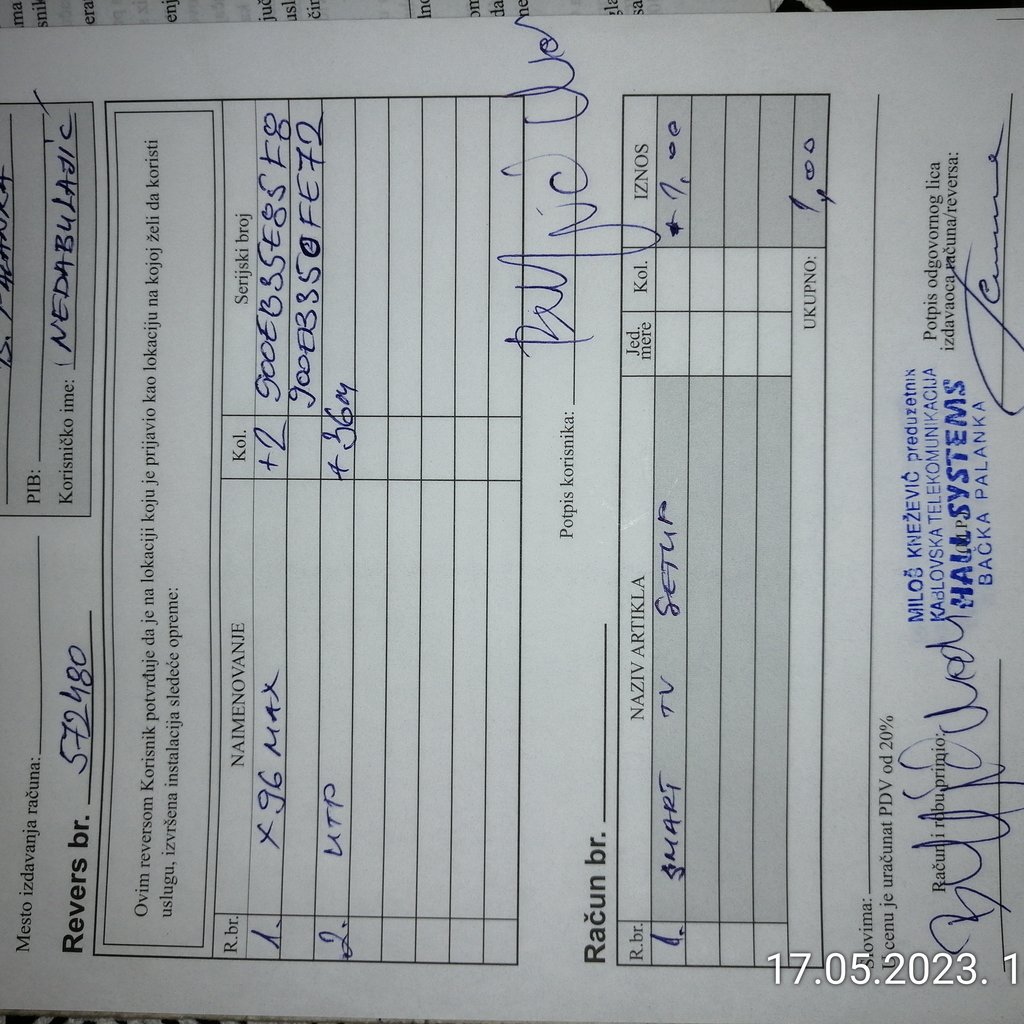 B. PALANKA
Mesto izdavanja računa:
PIB:
Revers br. 572480
Korisničko ime: NEDABULAJIC
Ovim reversom Korisnik potvrđuje da je na lokaciji koju je prijavio kao lokaciju na kojoj želi da koristi
uslugu, izvršena instalacija sledeće opreme:
R.br. NAIMENOVANJE Kol. Serijski broj
1. X96 MAX +2 900EB35E85F8
900EB350FE72
2. UTP + 36m
Potpis korisnika:
Račun br.
R.br. NAZIV ARTIKLA Jed. mere Kol. IZNOS
1. SMART TV SETUP 1,00
UKUPNO: 1,00
Slovima:
U cenu je uračunat PDV od 20%
Račun i robu primio:
MILOŠ KNEŽEVIĆ preduzetnik
KABLOVSKA TELEKOMUNIKACIJA
HALL SYSTEMS
BAČKA PALANKA
Potpis odgovornog lica
izdavaoca računa/reversa:
17.05.2023. 1